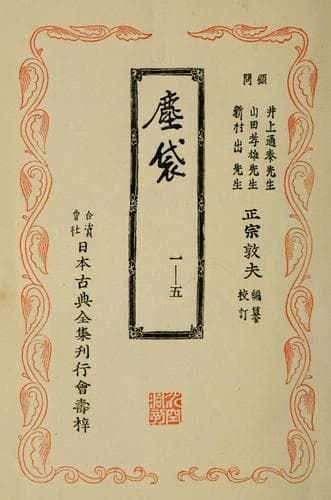 顧問
井上通泰先生
山田孝雄先生
新村出先生
正宗敦夫 編纂校訂
塵袋
一—五
合資會社
日本古典全集刊行會壽梓